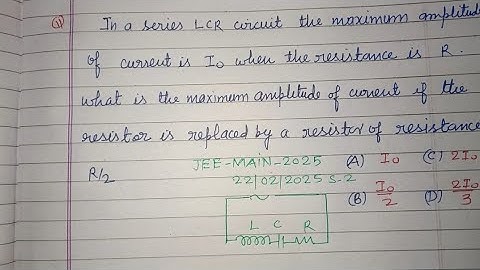 Q) In a series LCR circuit the maximum amplitude
of current is I₀ when the resistance is R.
what is the maximum amplitude of current if the
resistor is replaced by a resistor of resistance
R/2
JEE-MAIN-2025
22/02/2025 S-2
(A) I₀ (C) 2I₀
(B) I₀/2 (D) 2I₀/3
L C R